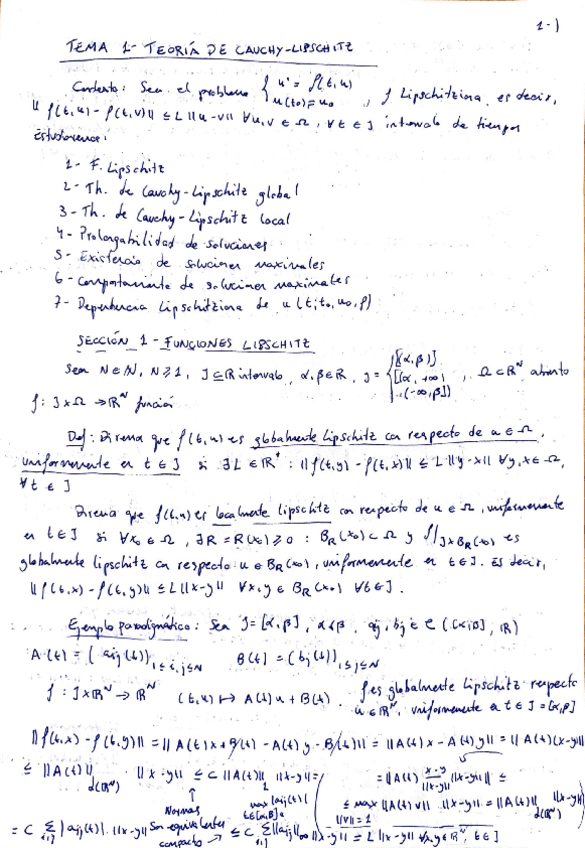 1-)
TEMA 1- TEORÍA DE CAUCHY-LIPSCHITZ
Contexto: Sea el problema { u' = f(t,u) u(t₀)=u₀ , f Lipschitziana, es decir,
‖f(t,u) - f(t,v)‖ ≤ L‖u-v‖ ∀u,v ∈ Ω, ∀t ∈ J intervalo de tiempos
Estudiaremos:
1- F. Lipschitz
2- Th. de Cauchy-Lipschitz global
3- Th. de Cauchy-Lipschitz local
4- Prolongabilidad de soluciones
5- Existencia de soluciones maximales
6- Comportamiento de soluciones maximales
7- Dependencia Lipschitziana de u(t;t₀,u₀,f)
SECCIÓN 1- FUNCIONES LIPSCHITZ
Sean N∈ℕ, N≥1, J⊆ℝ intervalo, α,β∈ℝ, J = , Ω⊂ℝᴺ abierto
f: J×Ω → ℝᴺ función
Def: Diremos que f(t,u) es globalmente Lipschitz con respecto de u∈Ω,
uniformemente en t∈J si ∃L∈ℝ⁺: ‖f(t,y) - f(t,x)‖ ≤ L‖y-x‖ ∀y,x∈Ω,
∀t∈J
Diremos que f(t,u) es localmente Lipschitz con respecto de u∈Ω, uniformemente
en t∈J si ∀x₀∈Ω, ∃R=R(x₀)≥0 : B_R(x₀)⊂Ω y f|_{J×B_R(x₀)} es
globalmente Lipschitz con respecto u∈B_R(x₀), uniformemente en t∈J. Es decir,
‖f(t,x) - f(t,y)‖ ≤ L‖x-y‖ ∀x,y∈B_R(x₀) ∀t∈J.
Ejemplo paradigmático: Sea J=[α,β], α<β, aij, bj ∈ C([α,β], ℝ)
A(t) = (aij(t))_{1≤i,j≤N} B(t) = (bj(t))_{1≤j≤N}
f: J×ℝᴺ → ℝᴺ (t,u) ↦ A(t)u + B(t). f es globalmente Lipschitz respecto
u∈ℝᴺ, uniformemente en t∈J=[α,β]
‖f(t,x) - f(t,y)‖ = ‖A(t)x + B(t) - A(t)y - B(t)‖ = ‖A(t)x - A(t)y‖ = ‖A(t)(x-y)‖
≤ ‖A(t)‖ ‖x-y‖ ≤ C‖A(t)‖₁ ‖x-y‖ =
= ‖A(t) (x-y)/‖x-y‖ ‖x-y‖‖ ≤
≤ max_{‖v‖=1} ‖A(t)v‖ ‖x-y‖ = ‖A(t)‖ ‖x-y‖
Normas son equivalentes
compacto
max |aij(t)| t∈[α,β]
= C Σ_{i,j} |aij(t)| ‖x-y‖ ≤ C Σ_{i,j} ‖aij‖∞ ‖x-y‖ = L‖x-y‖ ∀x,y∈ℝᴺ, t∈J